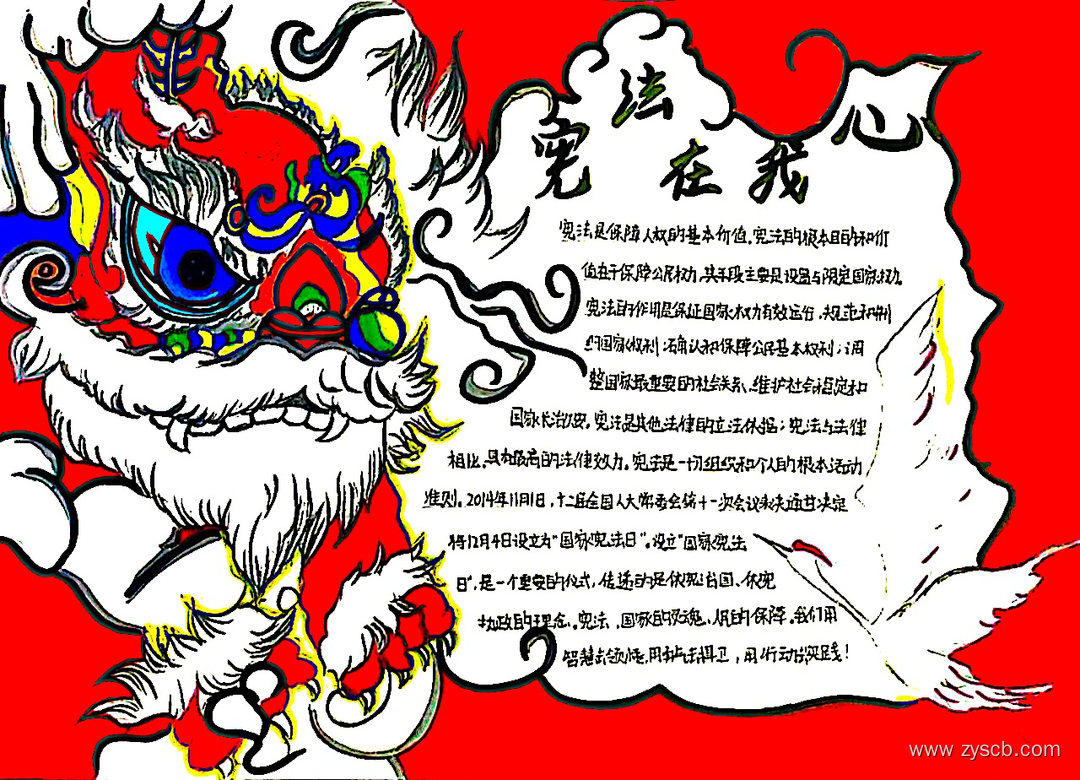 宪法在我心
宪法是保障人权的基本价值。宪法的根本目的和价
值在于保障公民权力,其手段主要是设置与限定国家权力。
宪法的作用是保证国家权力有效运行、规范和制
约国家权利;确认和保障公民基本权利;调
整国家最重要的社会关系、维护社会稳定和
国家长治久安。宪法是其他法律的立法依据;宪法与法律
相比,具有最高的法律效力。宪法是一切组织和个人的根本活动
准则。2014年11月1日,十二届全国人大常委会第十一次会议表决通过决定
将12月4日设立为"国家宪法日"。设立"国家宪法
日",是一个重要的仪式,传递的是依宪治国、依宪
执政的理念。宪法,国家的灵魂、人民的保障。我们用
智慧去领悟,用执法捍卫,用行动去实践!
www.zyscb.com